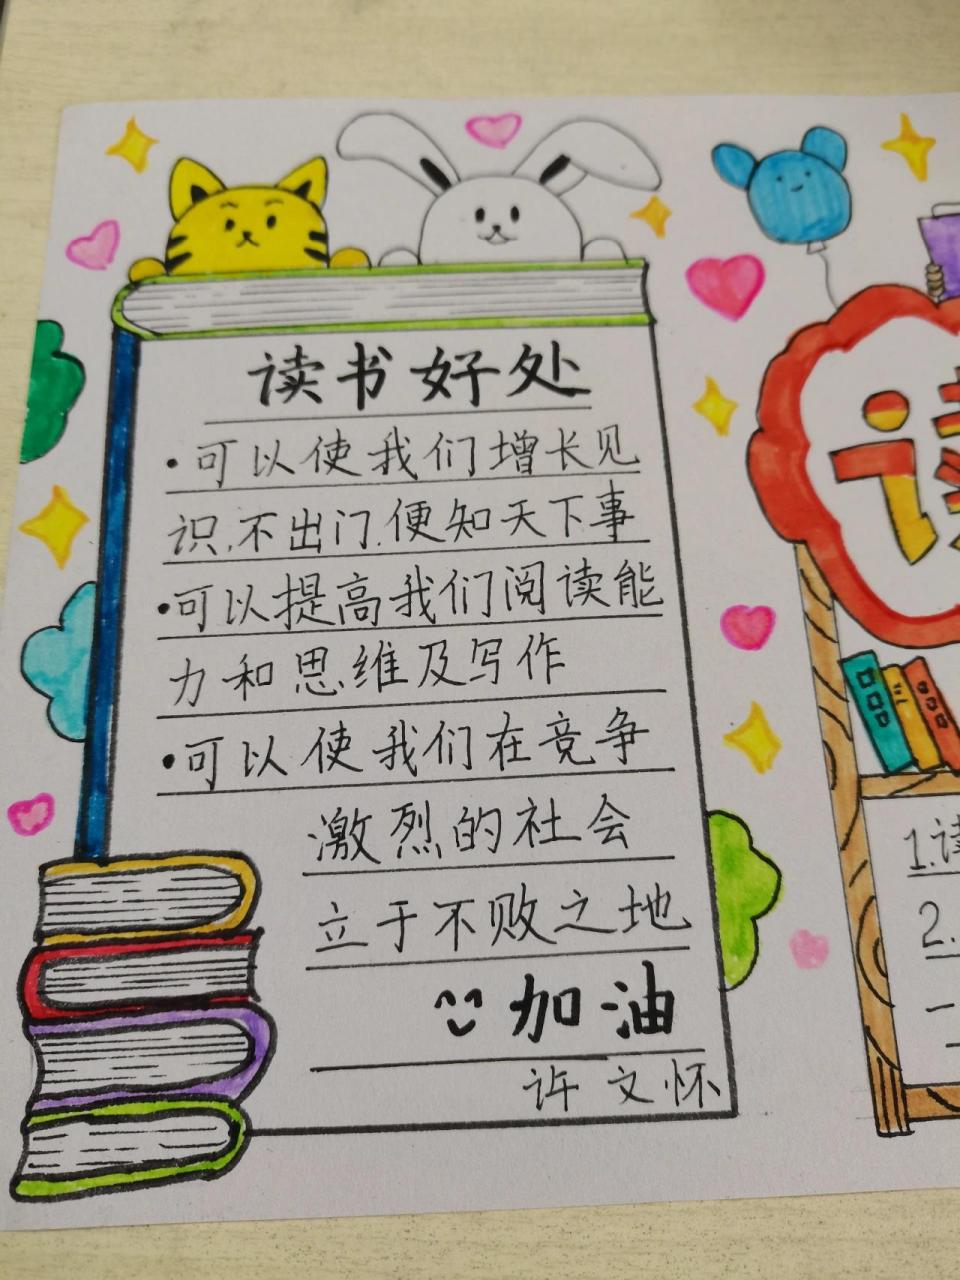 读书好处
·可以使我们增长见
识,不出门,便知天下事
·可以提高我们阅读能
力和思维及写作
·可以使我们在竞争
激烈的社会
立于不败之地
加油
许文怀
读
1.读
2.